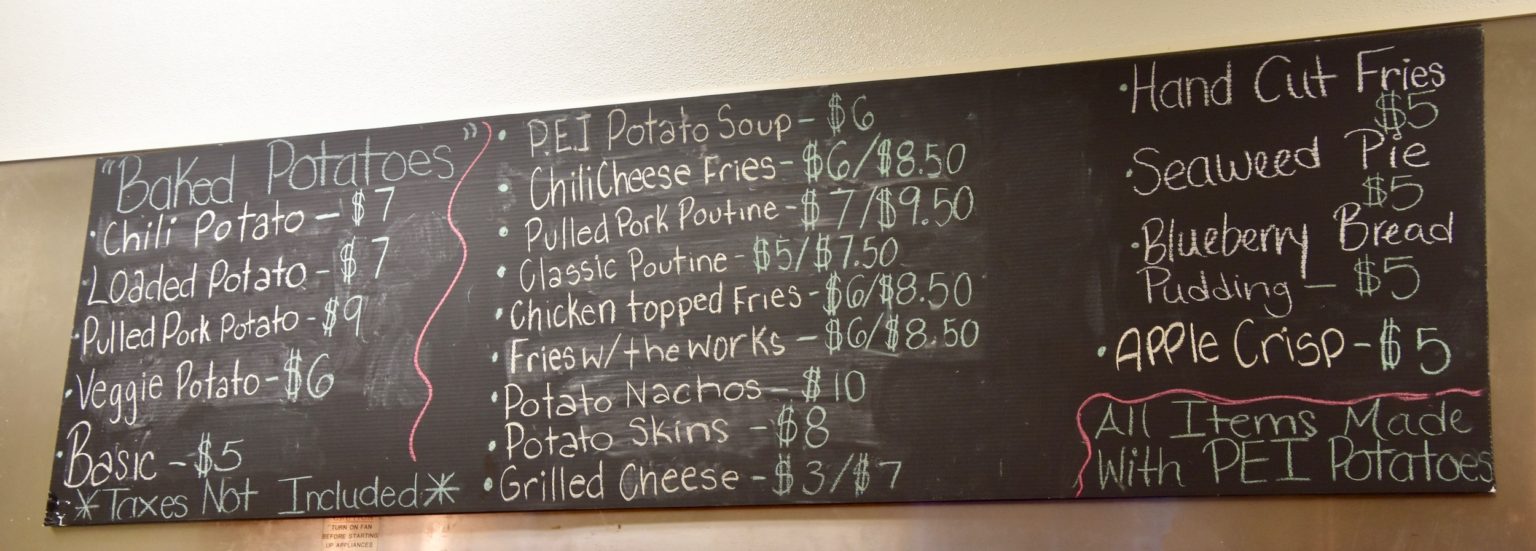 "Baked Potatoes"
• Chili Potato - $7
• Loaded Potato - $7
• Pulled Pork Potato - $9
• Veggie Potato - $6
• Basic - $5
*Taxes Not Included*
• P.E.I Potato Soup - $6
• Chili Cheese Fries - $6/$8.50
• Pulled Pork Poutine - $7/$9.50
• Classic Poutine - $5/$7.50
• Chicken topped Fries - $6/$8.50
• Fries w/ the works - $6/$8.50
• Potato Nachos - $10
• Potato Skins - $8
• Grilled Cheese - $3/$7
• Hand Cut Fries
$5
• Seaweed Pie
$5
• Blueberry Bread
Pudding - $5
• Apple Crisp - $5
All Items Made
With PEI Potatoes
TURN ON FAN
BEFORE STARTING
UP APPLIANCES